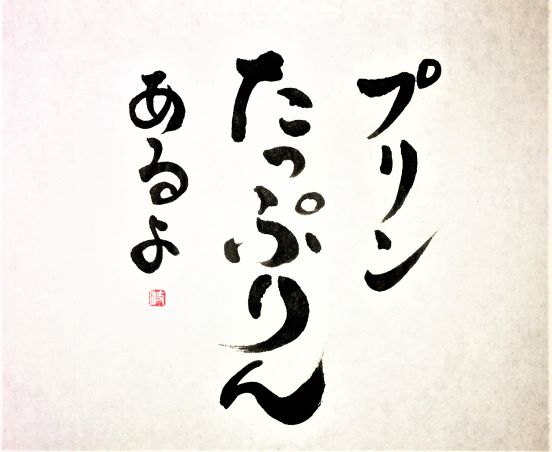 プリン
たっぷりん
あるよ